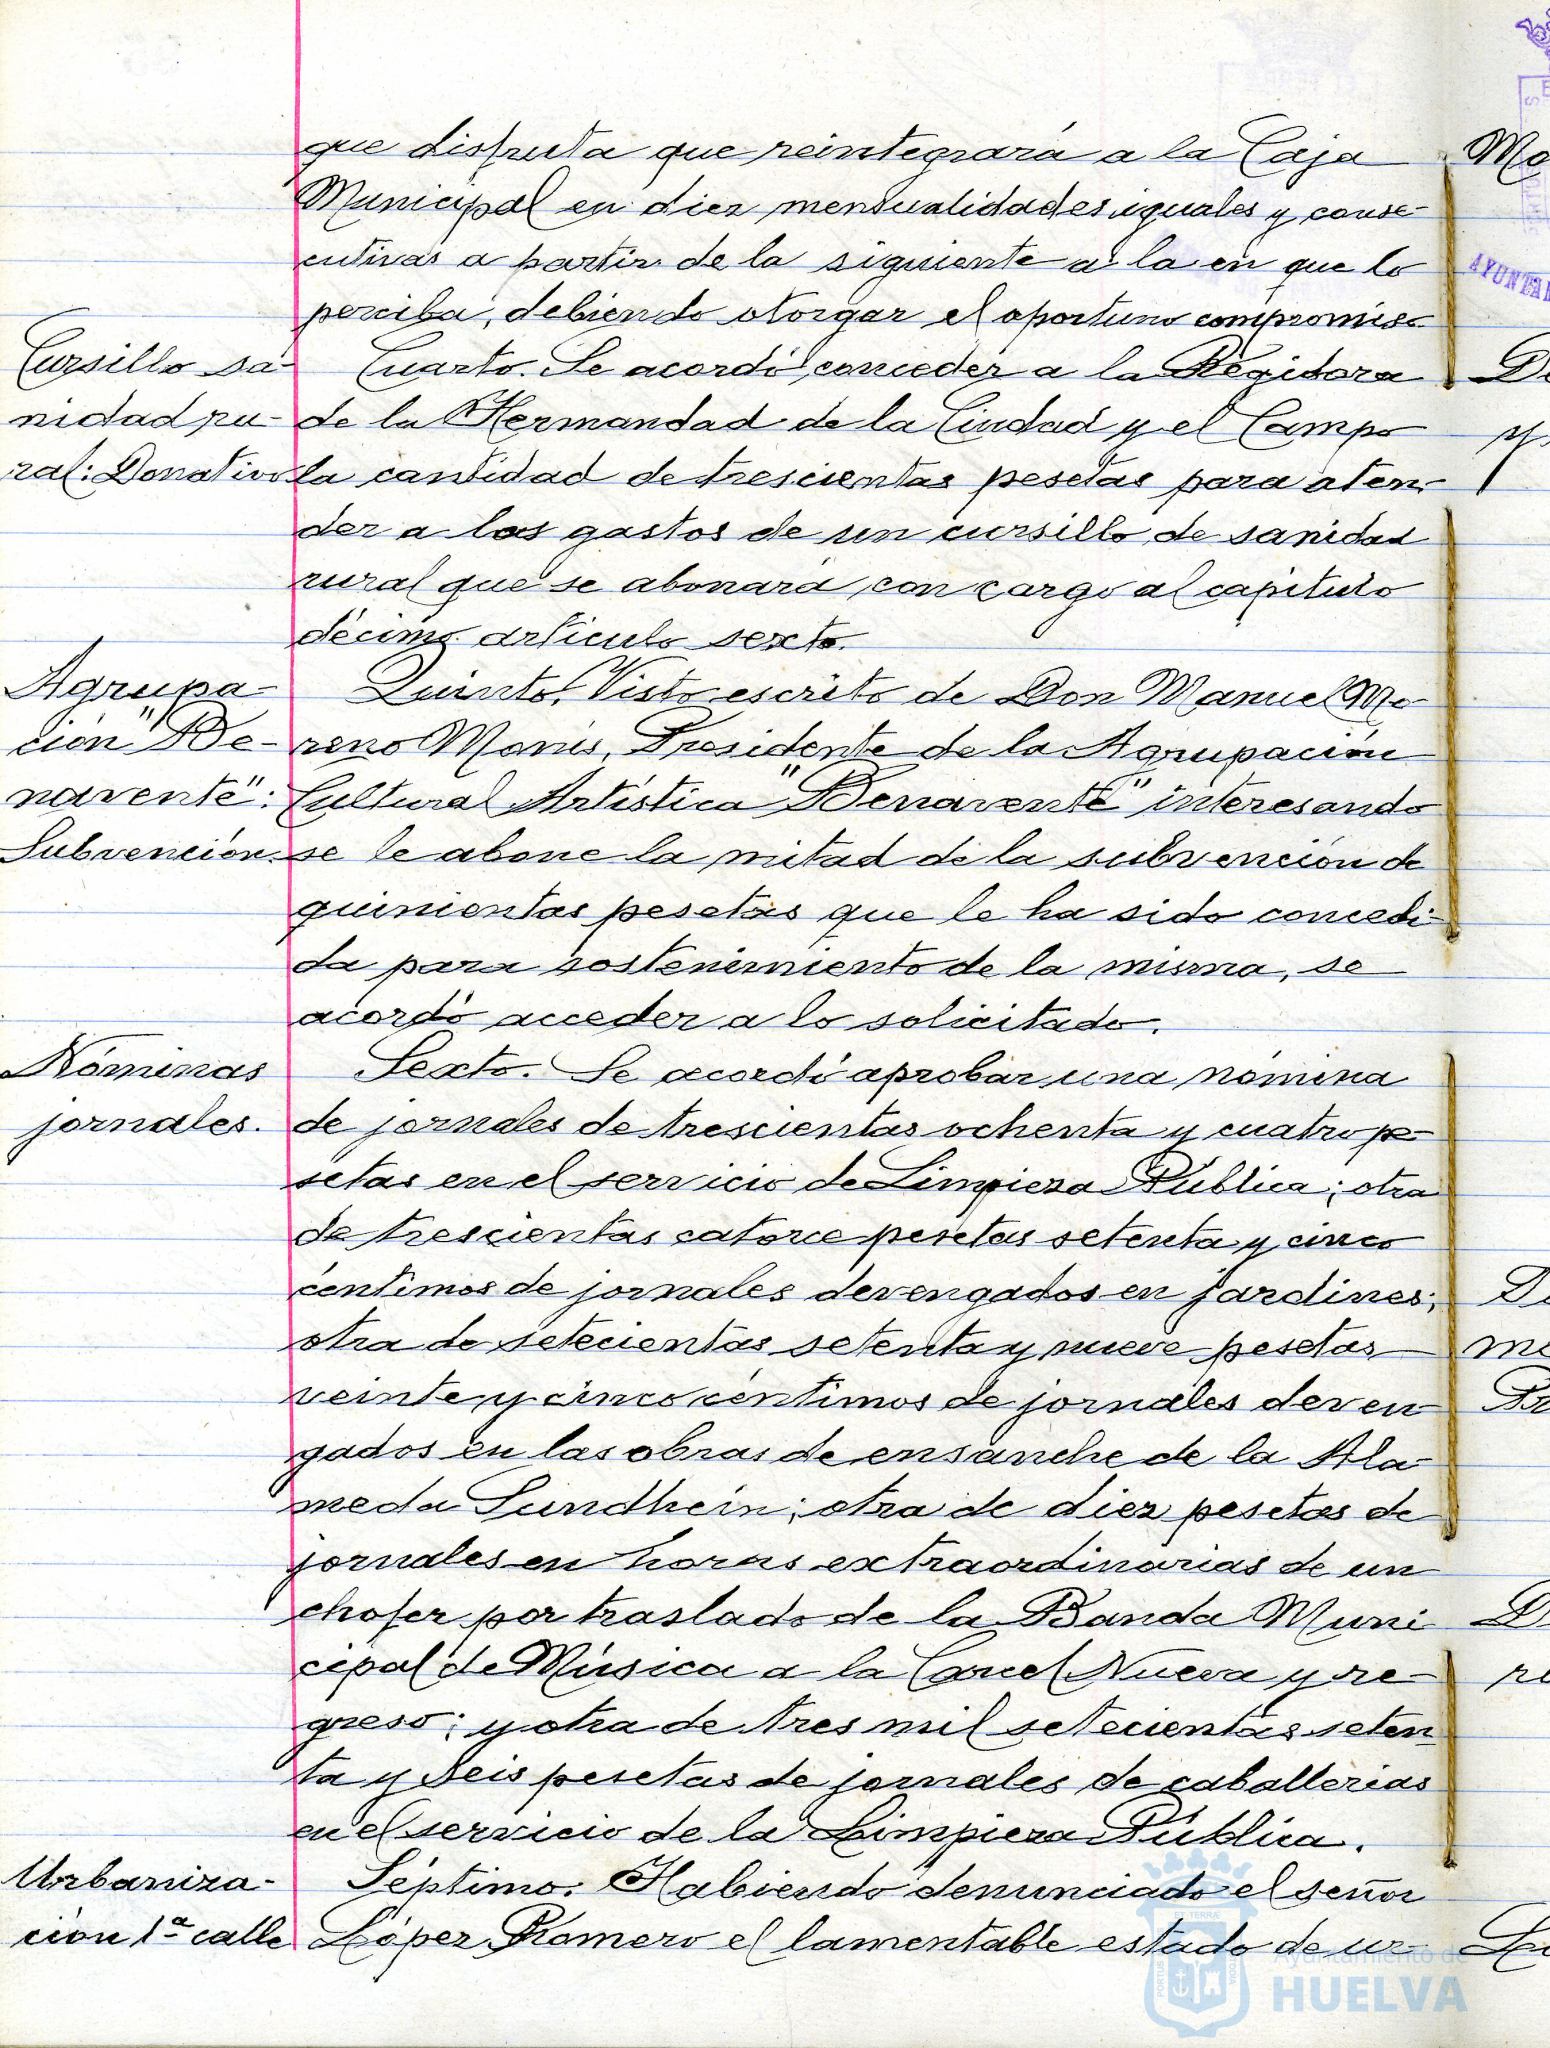 que disfruta que reintegrará a la Caja
Municipal en diez mensualidades iguales y conse-
cutivas a partir de la siguiente a la en que lo
perciba, debiendo otorgar el oportuno compromiso
Cursillo sa-
nidad ru-
ral: Donativo
Cuarto. Se acordó conceder a la Regidora
de la Hermandad de la Ciudad y el Campo
la cantidad de trescientas pesetas para aten-
der a los gastos de un cursillo de sanidad
rural que se abonará con cargo al capítulo
décimo artículo sexto.
Agrupa-
ción "Be-
navente":
Subvención.
Quinto. Visto escrito de Don Manuel Mo-
reno Monís, Presidente de la Agrupación
Cultural Artística "Benavente" interesando
se le abone la mitad de la subvención de
quinientas pesetas que le ha sido concedi-
da para sostenimiento de la misma, se
acordó acceder a lo solicitado.
Nóminas
jornales.
Sexto. Se acordó aprobar una nómina
de jornales de trescientas ochenta y cuatro pe-
setas en el servicio de Limpieza Pública; otra
de trescientas catorce pesetas setenta y cinco
céntimos de jornales devengados en jardines;
otra de setecientas setenta y nueve pesetas
veinte y cinco céntimos de jornales deven-
gados en las obras de ensanche de la Ala-
meda Sundhein; otra de diez pesetas de
jornales en horas extraordinarias de un
chofer por traslado de la Banda Muni-
cipal de Música a la Carcel Nueva y re-
greso; y otra de tres mil setecientas seten-
ta y seis pesetas de jornales de caballerias
en el servicio de la Limpieza Pública.
Urbaniza-
ción 1ª calle
Séptimo. Habiendo denunciado el señor
López Romero el lamentable estado de ur-
Ayuntamiento de
HUELVA